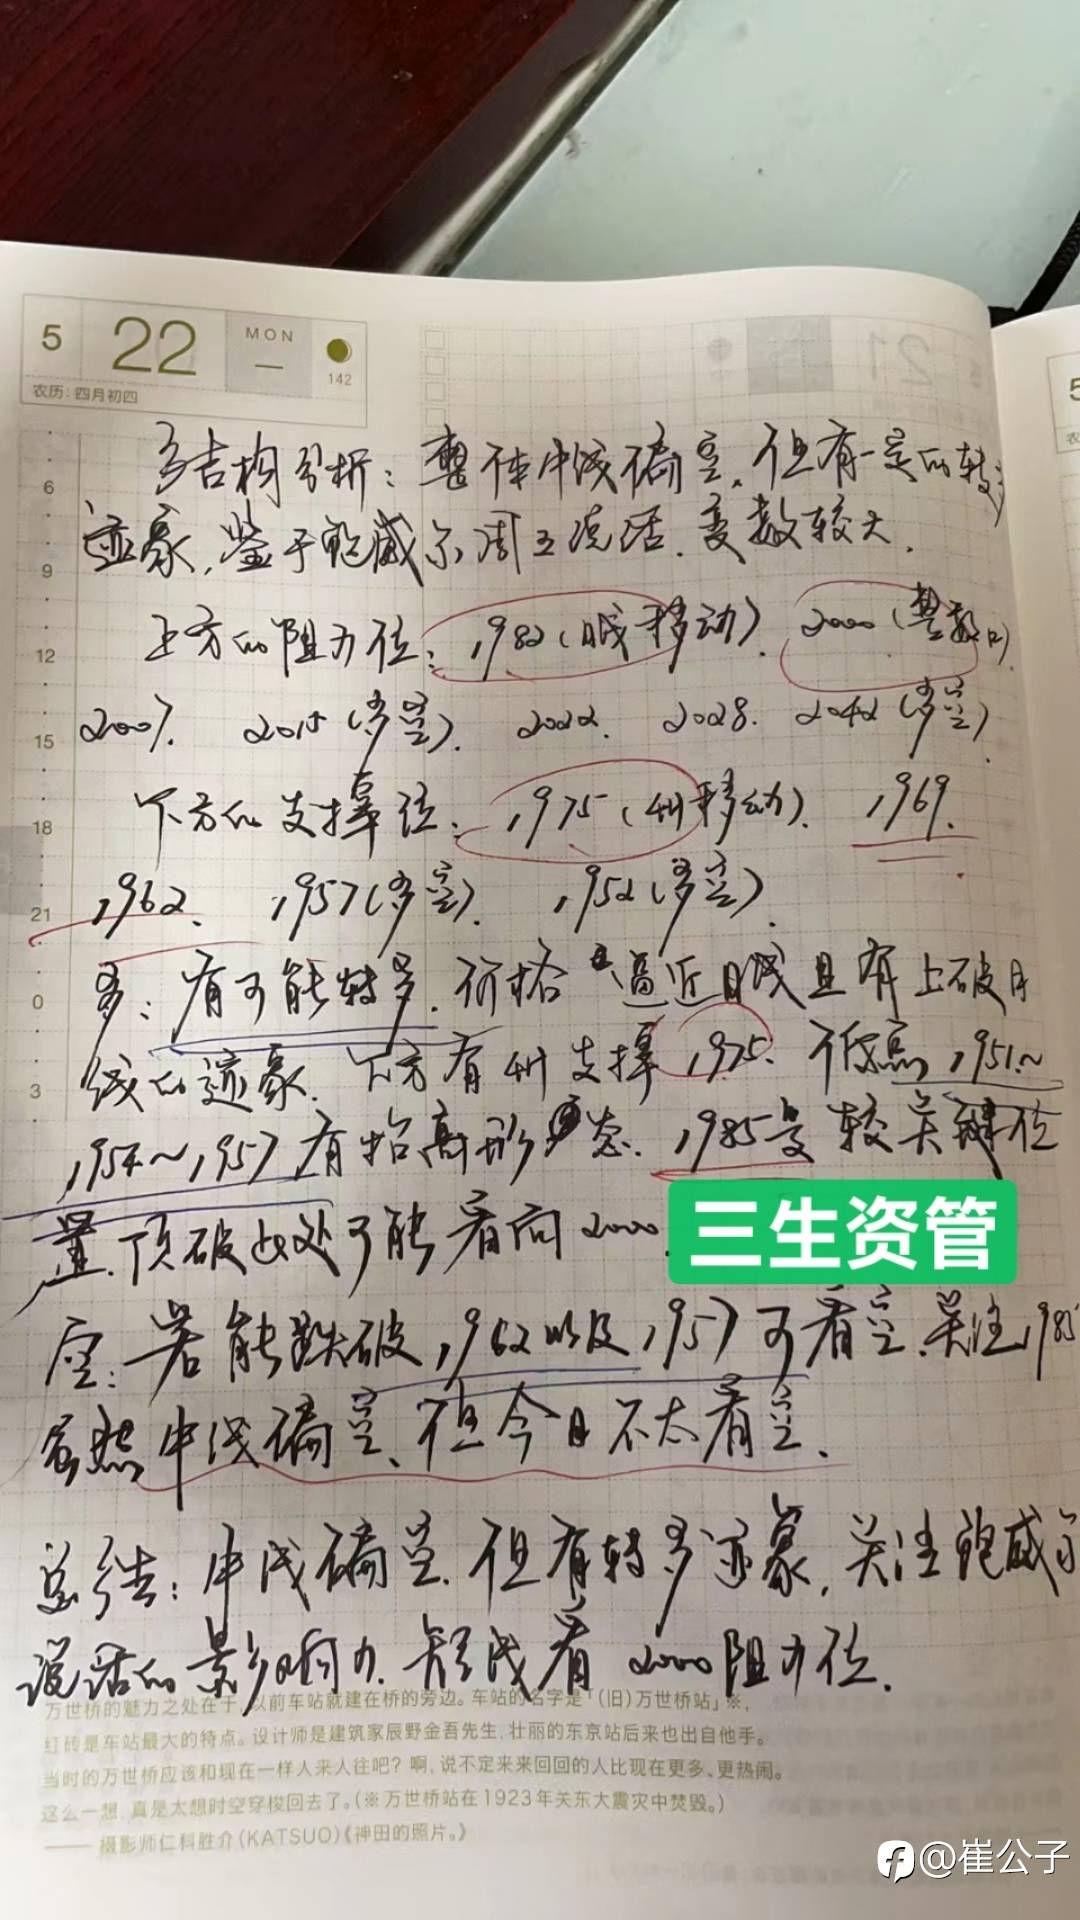 5 22 MON 一 142
农历:四月初四
21
多结构分析:整体中线偏空,但有一定的转多
迹象,鉴于鲍威尔周五说话,变数较大,
6
9
12
15
18
21
0
3
上方的阻力位:1982(日线移动).2000(整数口).
2007. 2015(多空). 2022. 2028. 2042(多空)
下方的支撑位:1975(4H移动). 1969.
1962. 1957(多空). 1952(多空).
多:有可能转多.价格逼近日线且有上破月
线的迹象.下方有4H支撑1975.低点1951~
1954~1957有抬高形态.1985是较关键位
置.顶破此处可能看向2000.
三生资管
空:若能跌破1962以及1957可看空.关注1985
虽然中线偏空,但今日不太看空.
总结:中线偏空.但有转多迹象,关注鲍威尔
说话的影响力.短线看2000阻力位.
万世桥的魅力之处在于,以前车站就建在桥的旁边。车站的名字是「(旧)万世桥站」※,
红砖是车站最大的特点。设计师是建筑家辰野金吾先生,壮丽的东京站后来也出自他手。
当时的万世桥应该和现在一样人来人往吧?啊,说不定来来回回的人比现在更多、更热闹。
这么一想,真是太想时空穿梭回去了。(※万世桥站在1923年关东大震灾中焚毁。)
—— 摄影师仁科胜介(KATSUO)《神田的照片。》
@崔公子